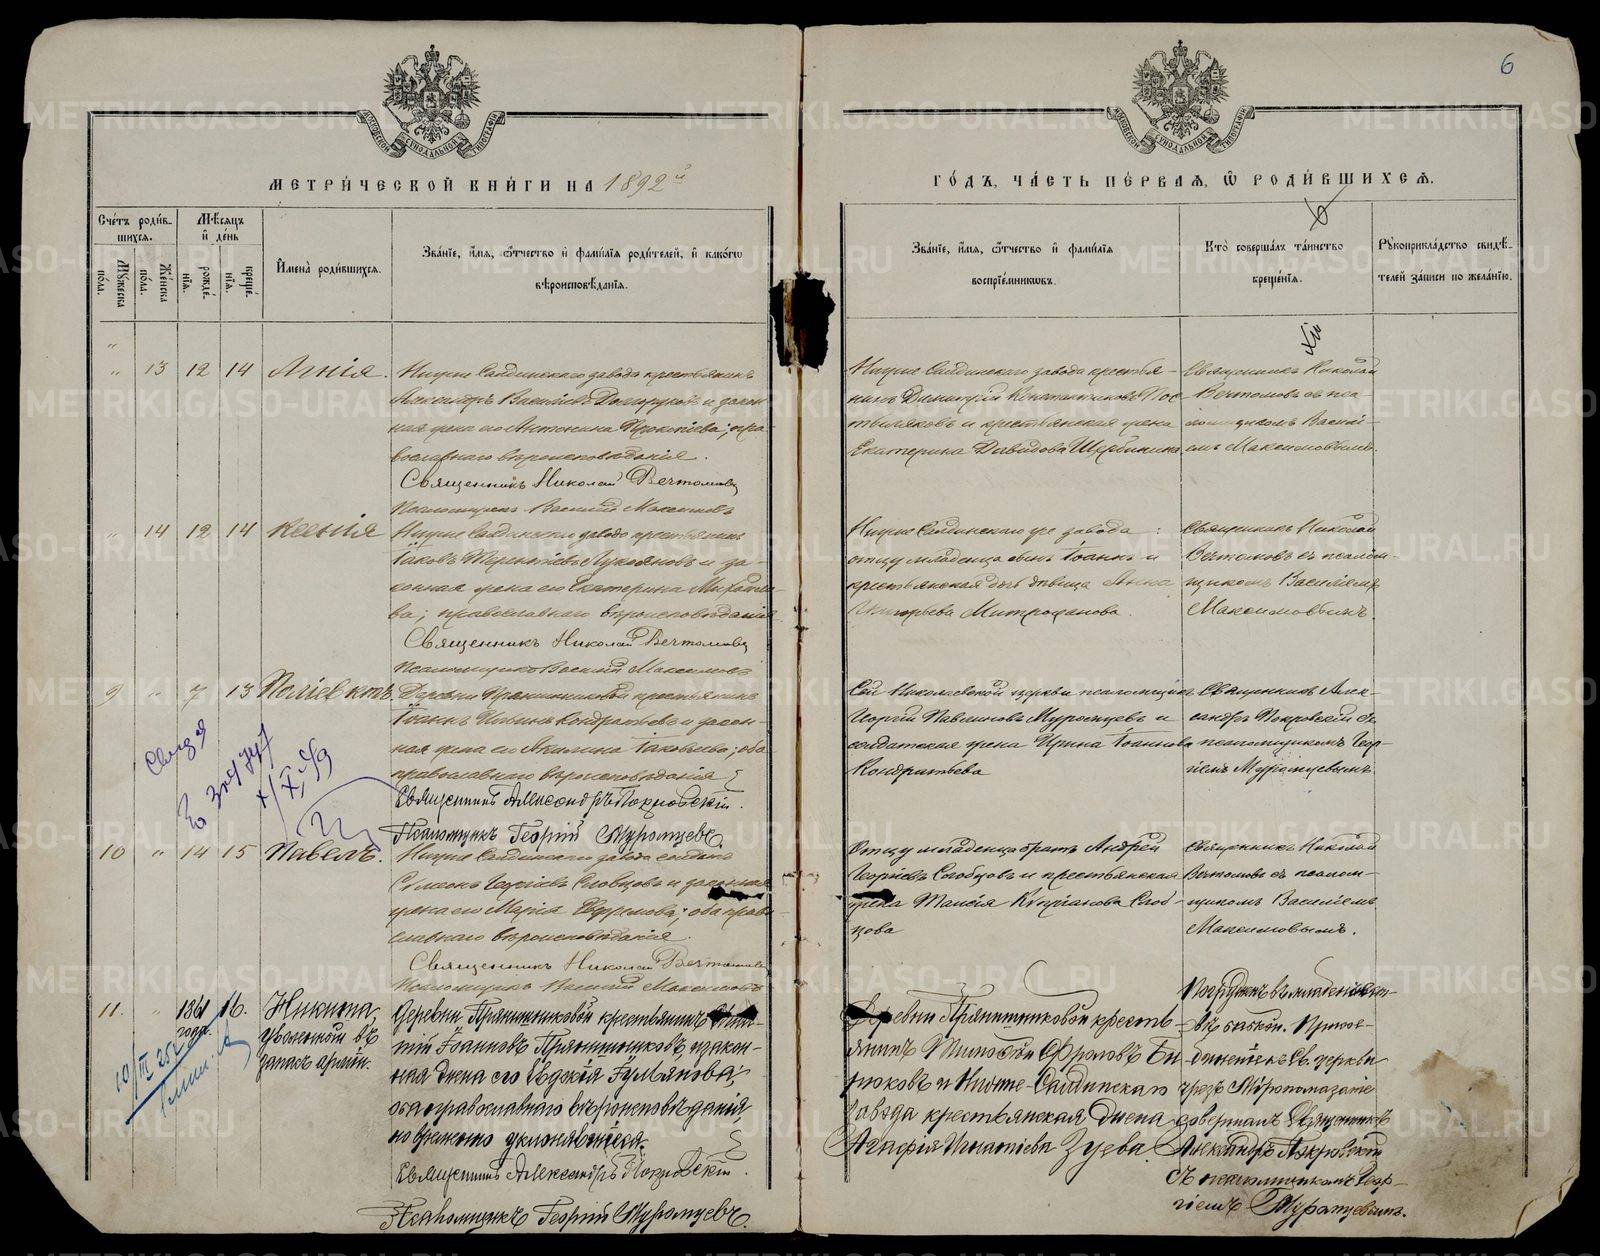 6
МЕТРИ́ЧЕСКОЙ КНИ́ГИ НА 1892й
ГО́ДЪ, ЧА́СТЬ ПЕ́РВАЯ, Ѿ РОДИ́ВШИХСЯ.
Сче́тъ роди́в-
шихся.
Мꙋжеска по́ла.
Же́нска по́ла.
Мѣсяцъ и́ де́нь
рожде́нїя.
креще́нїя.
И҆мена̀ роди́вшихся.
Зва́нїе, и҆мя, ѻ҆тчество и҆ фами́лїя роди́телей, и҆ како́гѡ
вѣроисповѣ́данїя.
Зва́нїе, и҆мя, ѻ҆тчество и҆ фами́лїя
воспрїе́мникѡвъ.
Кто̀ соверша́лъ та́инство
креще́нїя.
Рꙋкоприкла́дство свидѣ́-
телей за́писи по жела́нїю.
" 13 12 14 Агнія.
Нижне Салдинскаго завода крестьянинъ
Александръ Васильевъ Долгоруковъ и закон-
ная жена его Антонина Прокопіева; пра-
вославнаго вѣроисповѣданія.
Священникъ Николай Вечтомовъ
Псаломщикъ Василій Максимовъ
Нижне Салдинскаго завода крестья-
нинъ Димитрій Константиновъ Пос-
тыляковъ и крестьянская жена
Екатерина Давидова Щербинина
Священникъ Николай
Вечтомовъ съ пса-
ломщикомъ Васлі-
емъ Максимовымъ.
" 14 12 14 Ксенія
Нижне Салдинскаго завода крестьянинъ
Іаковъ Терентіевъ Лукояновъ и за-
конная жена его Екатерина Михайло-
ва; православнаго вѣроисповѣданія
Священникъ Николай Вечтомовъ
Псаломщикъ Василій Максимовъ
Нижне Салдинскаго же завода:
отцу младенца сынъ Іоаннъ и
крестьянская дочь дѣвица Анна
Григорьева Митрофанова.
Священникъ Николай
Вечтомовъ съ псалом-
щикомъ Василіемъ
Максимовымъ.
9 " 7 13 Поліевктъ.
Деревни Прянишниковой крестьянинъ
Іоаннъ Кондратьевъ и закон-
ная жена его Акилина Іаковлева; оба
православнаго вѣроисповѣданія
Священникъ Александръ Покровскій.
Псаломщикъ Георгій Муромцевъ.
Сей Николаевской церкви псаломщикъ
Георгій Павлиновъ Муромцевъ и
солдатская жена Ирина Іоаннова
Кондратьева
Священникъ Алек-
сандръ Покровскій съ
псаломщикомъ Геор-
гіемъ Муромцевымъ.
10 " 14 15 Павелъ.
Нижне Салдинскаго завода солдатъ
Симеонъ Георгіевъ Слобцовъ и законная
жена его Марія Ефремова; оба право-
славнаго вѣроисповѣданія.
Священникъ Николай Вечтомовъ
Псаломщикъ Василій Максимовъ
Отцу младенца братъ Андрей
Георгіевъ Слобцовъ и крестьянская
жена Таисія Кипріанова Слоб-
цова
Священникъ Николай
Вечтомовъ съ псалом-
щикомъ Василіемъ
Максимовымъ.
11. " 1861 года. 16. Никита,
уволенный въ
запасъ арміи.
Деревни Прянишниковой крестьянинъ
Іоанновъ Прянишниковъ, и закон-
ная жена его Евдокія Гумьянова;
оба православнаго вѣроисповѣданія,
но временно уклонявшіеся.
Священникъ Александръ Покровскій.
Псаломщикъ Георгій Муромцевъ.
Деревни Прянишниковой кресть-
янинъ Тимофей Фроловъ Би-
рюковъ и Нижне-Салдинскаго
завода крестьянская жена
Агафія Игнатіева Зуева.
Погруженъ въ младенчест-
вѣ бабкой. Присое-
диненіе къ Св. церкви
чрезъ Мѵропомазаніе
совершалъ Священникъ
Александръ Покровскій
съ псаломщикомъ Геор-
гіемъ Муромцевымъ.
METRIKI.GASO-URAL.RU